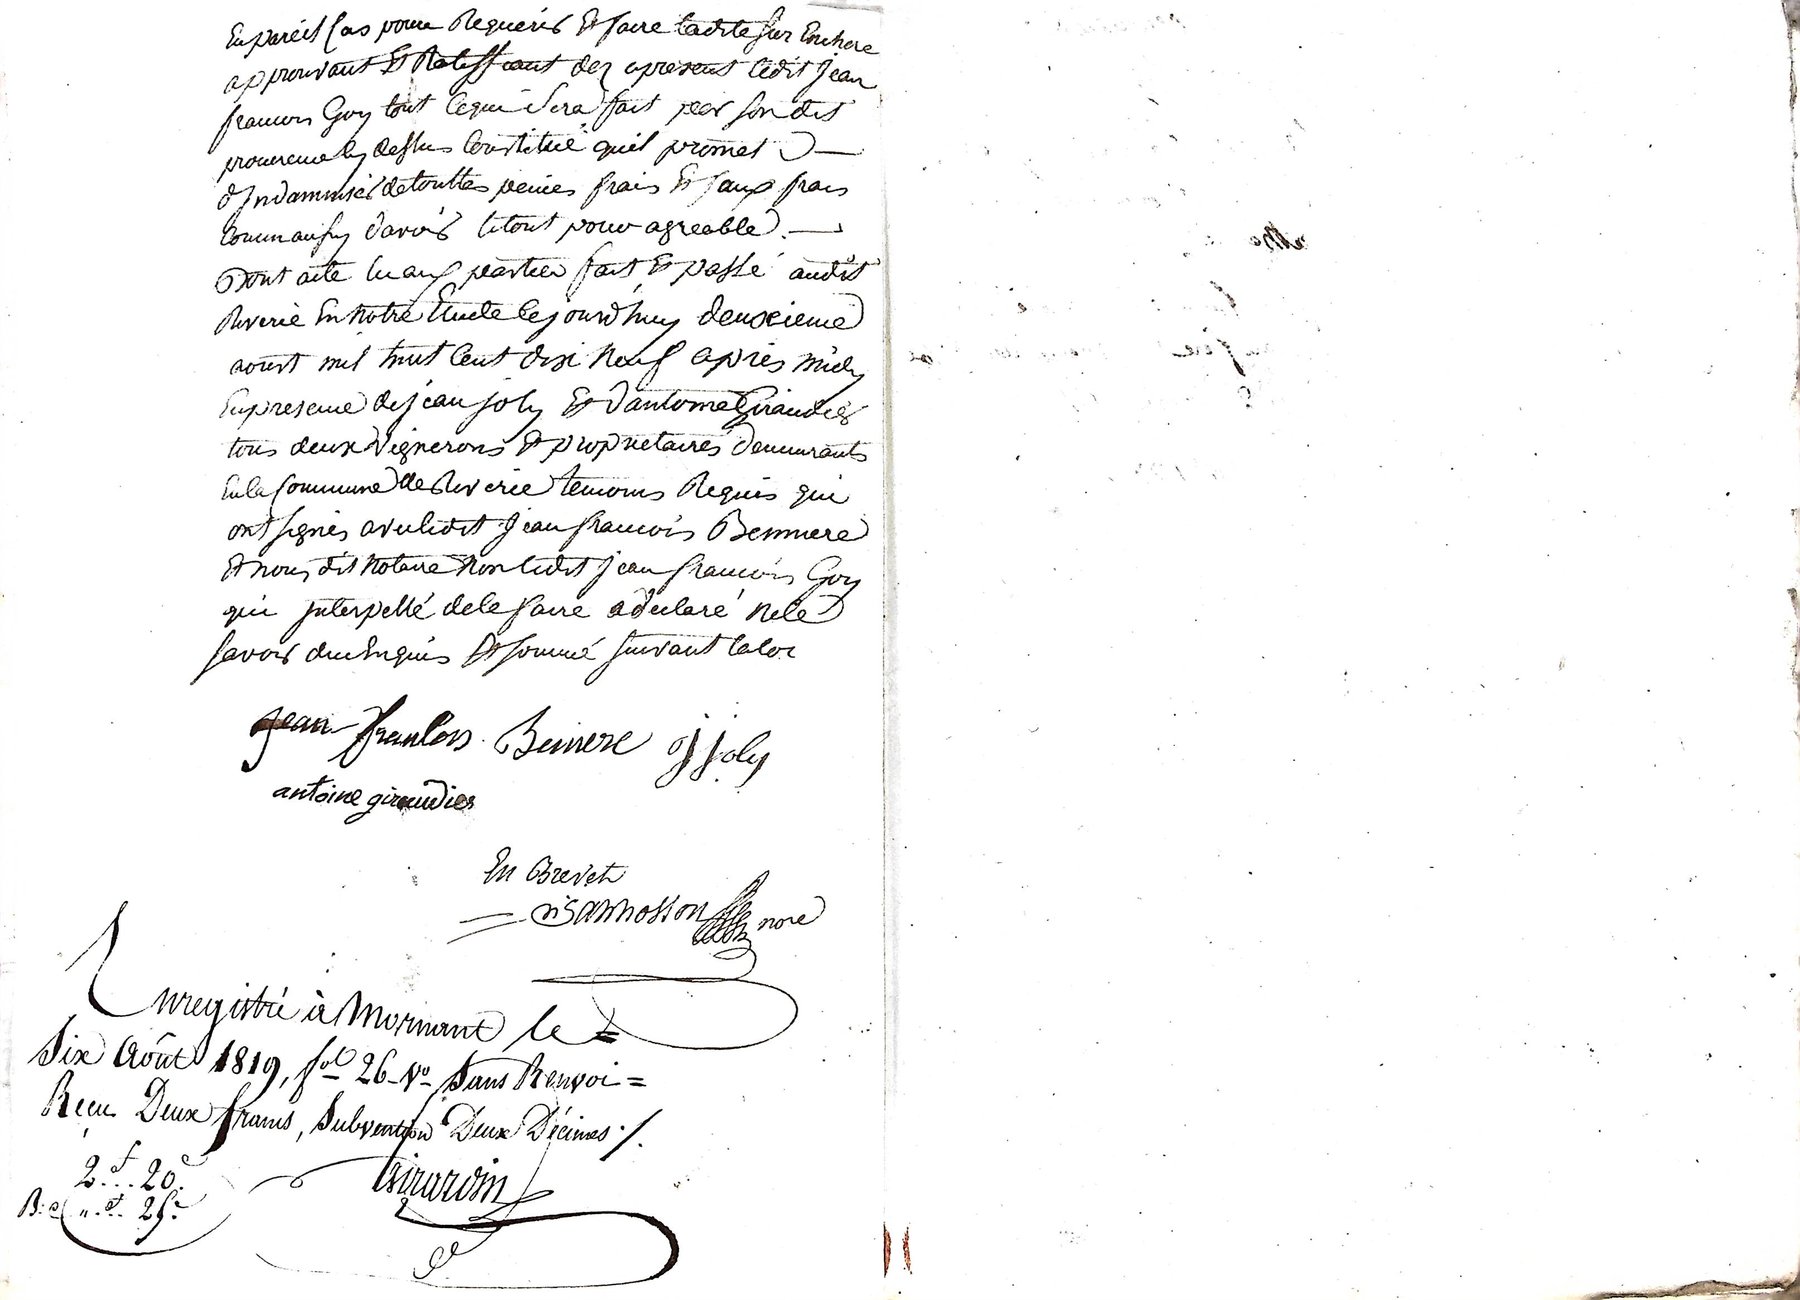 En pareil Cas pour Requerir Et faire ladite sur Enchere
approuvant Et Ratiffiant dez apresent ledit jean
francois Goy tout Cequi Sera fait par son dit
procureur Cy dessus Constitué quil promet
d'Indamniser detouttes peines frais Et faux frais
Comm'aussy d'avoir letout pour agreable.
Dont acte lu aux parties fait Et passé audit
Riverie En notre Etude Cejourd'huy deuxieme
aoust mil huit Cent dix Neuf apres midy
En presence de jean joly Et d'antoine Giraudier
tous deux Vignerons Et proprietaires demeurants
En la Commune de Riverie temoins Requis qui
ont signés avec ledit jean francois Bennere
Et nous dit Notaire Non ledit jean francois Goy
qui interpellé de le faire a declaré Ne le
savoir duEnquis Et sommé suivant la loi
jean francois Bennere jjoly
antoine giraudier
En Brevet
nore
Enregistré à Mornant le =
Six Août 1819, fol 26 Vo Sans Renvoi =
Reçu Deux francs, Subvention Deux Décimes ./.
2f.. 20c
Girardin
25c